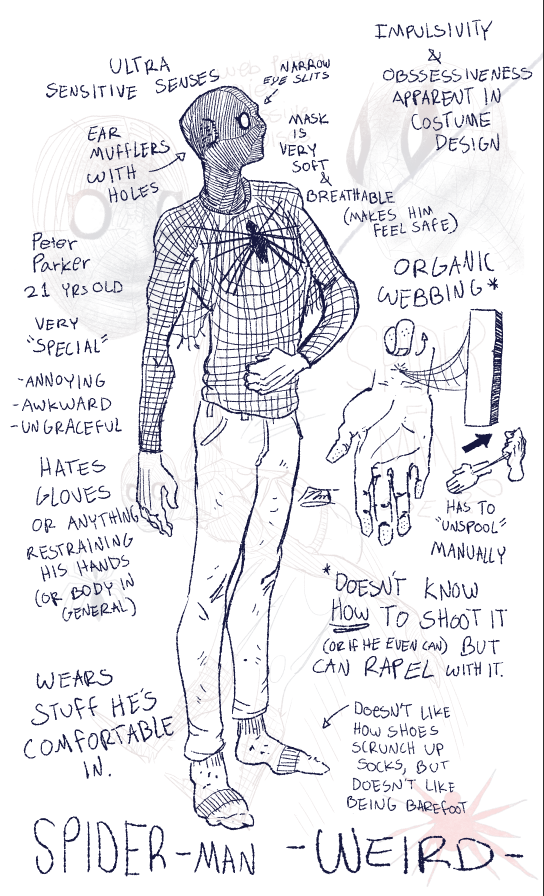 ULTRA
SENSITIVE SENSES
NARROW
EYE SLITS
IMPULSIVITY
&
OBSSESSIVENESS
APPARENT IN
COSTUME
DESIGN
EAR
MUFFLERS
WITH
HOLES
MASK
IS
VERY
SOFT
&
BREATHABLE
(MAKES HIM
FEEL SAFE)
Peter
Parker
21 YRS OLD
VERY
"SPECIAL"
-ANNOYING
-AWKWARD
-UNGRACEFUL
ORGANIC
WEBBING*
HATES
GLOVES
OR ANYTHING
RESTRAINING
HIS HANDS
(OR BODY IN
GENERAL)
HAS TO
"UNSPOOL"
MANUALLY
*DOESN'T KNOW
HOW TO SHOOT IT
(OR IF HE EVEN CAN) BUT
CAN RAPEL WITH IT.
WEARS
STUFF HE'S
COMFORTABLE
IN.
DOESN'T LIKE
HOW SHOES
SCRUNCH UP
SOCKS, BUT
DOESN'T LIKE
BEING BAREFOOT
SPIDER-MAN -WEIRD-